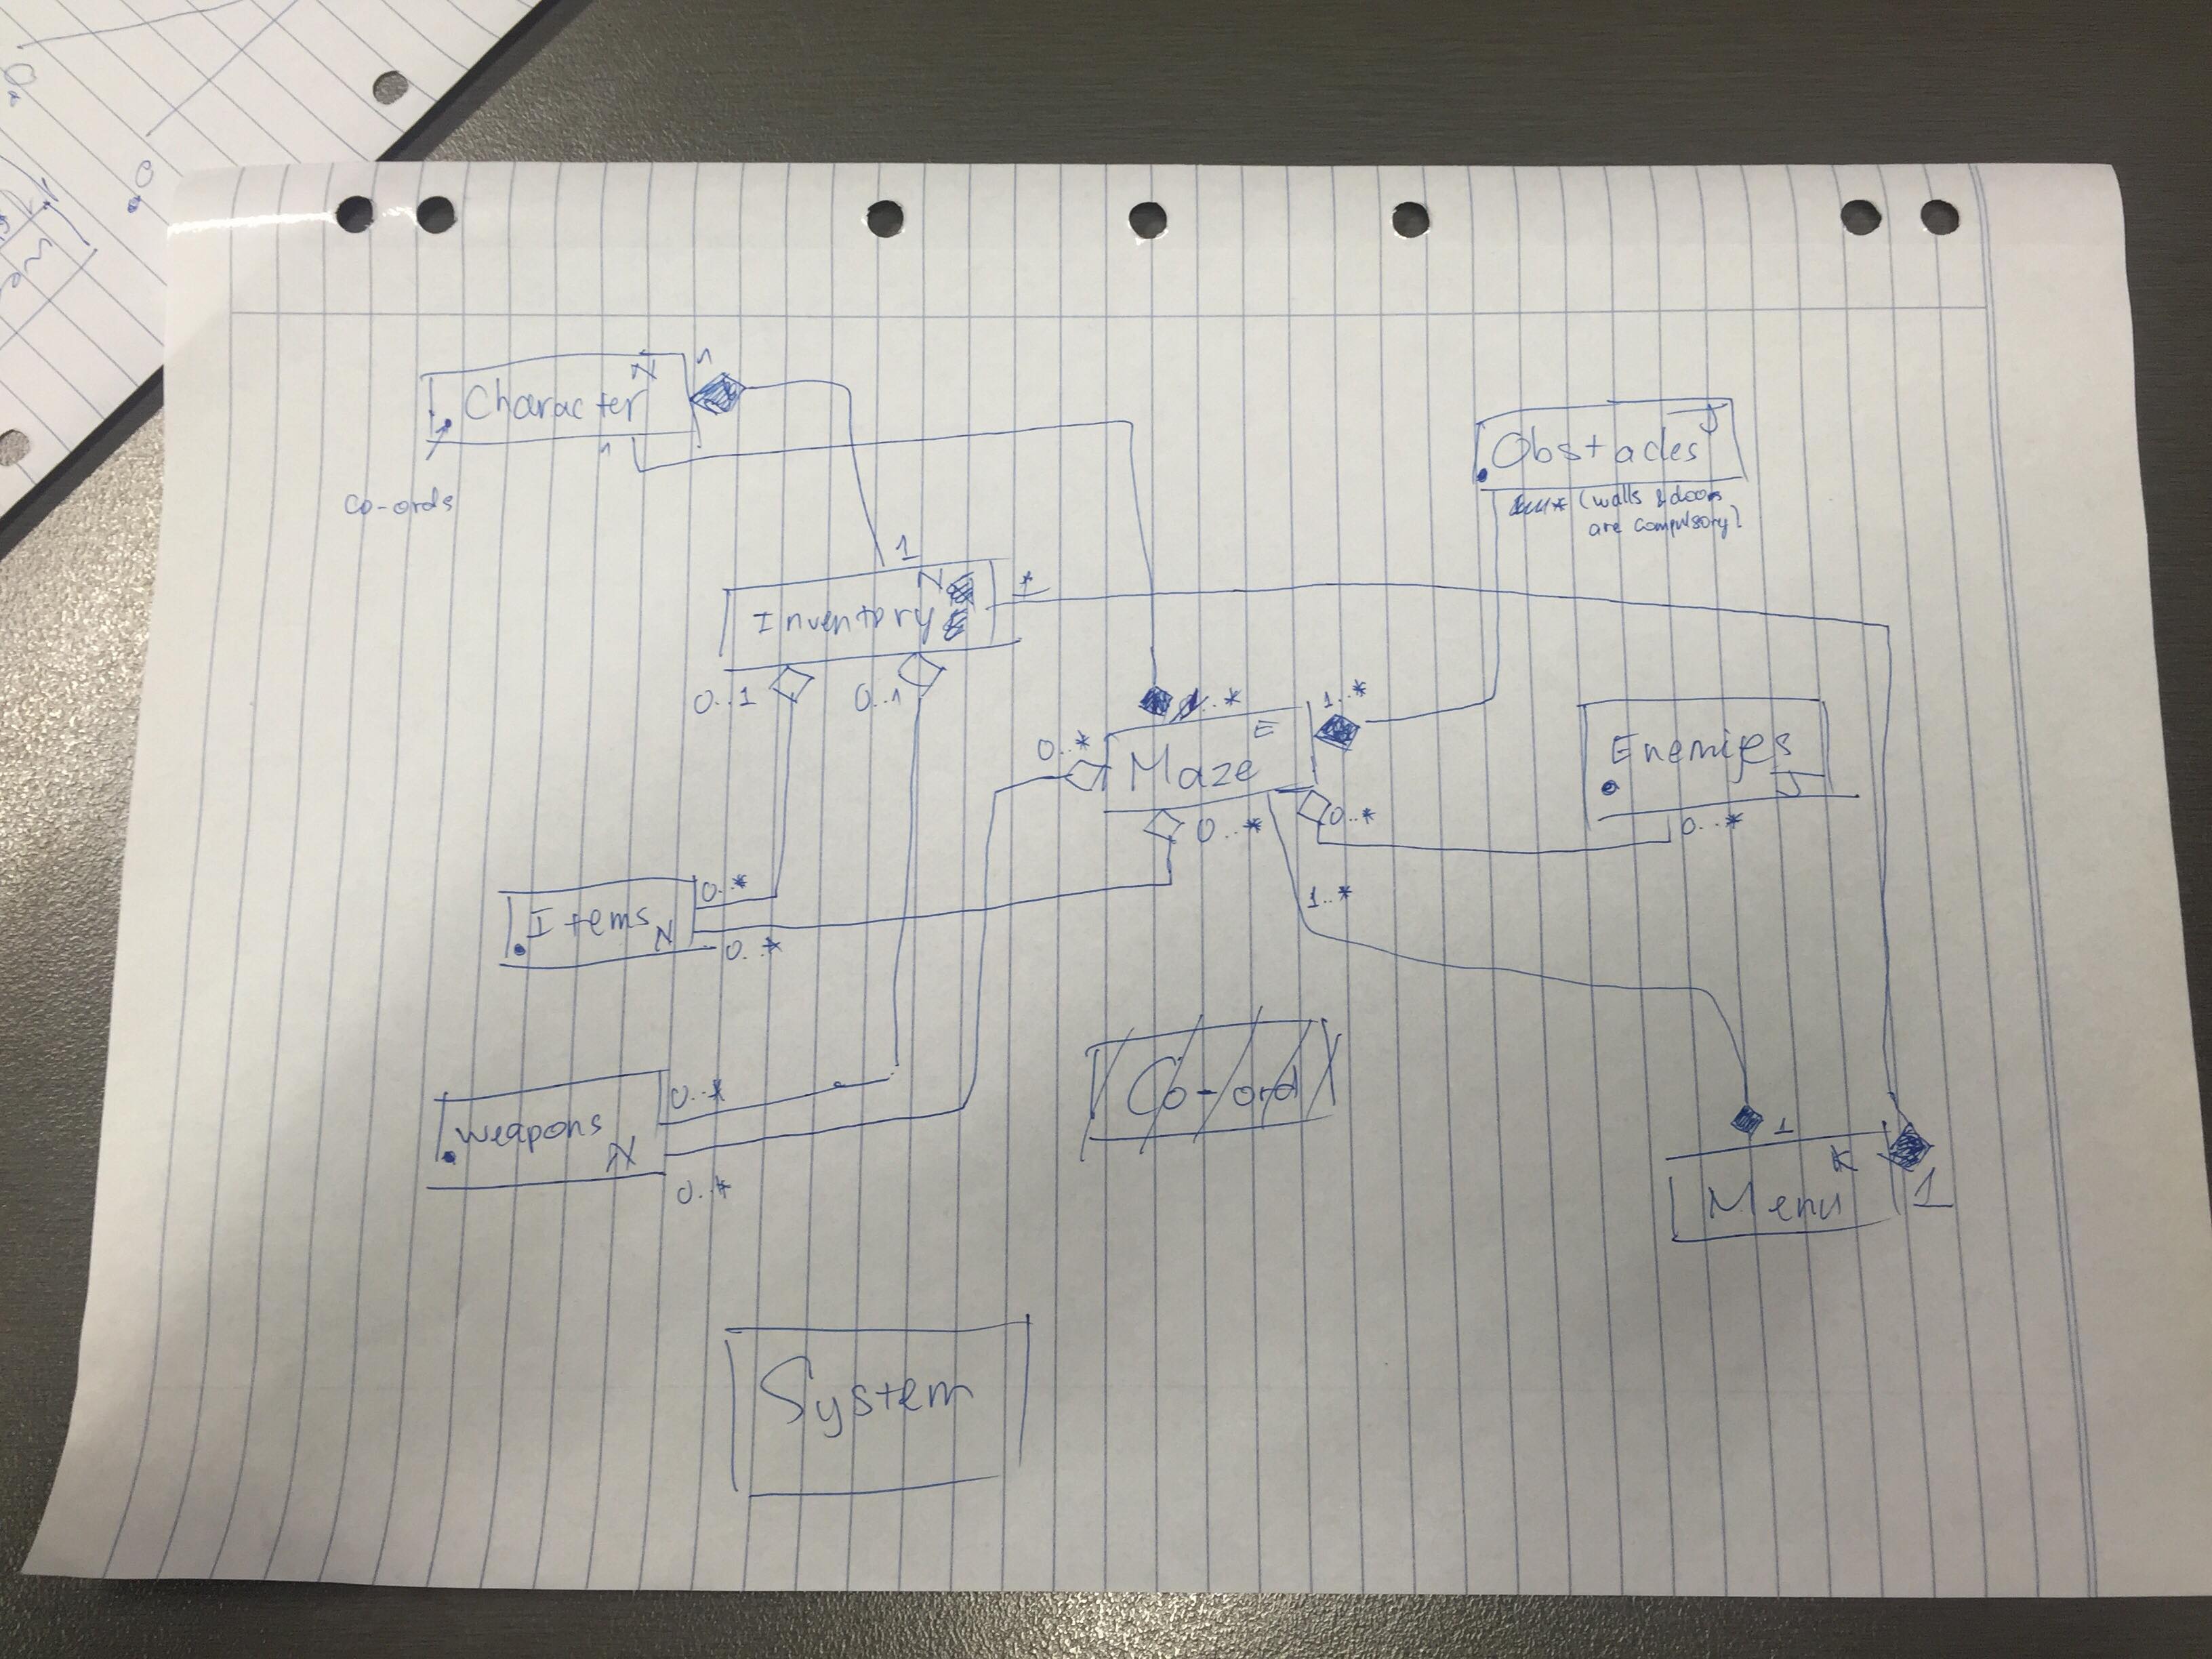 N
1
Character
1
co-ords
J
Obstacles
(walls & doors
are compulsory)
1
N
*
Inventory
0..1
0..1
..*
1..*
E
0..*
Maze
0..*
0..*
Enemies
J
0..*
0..*
Items
N
0..*
1..*
0..*
weapons
N
0..*
Co-ord
1
K
Menu
1
System